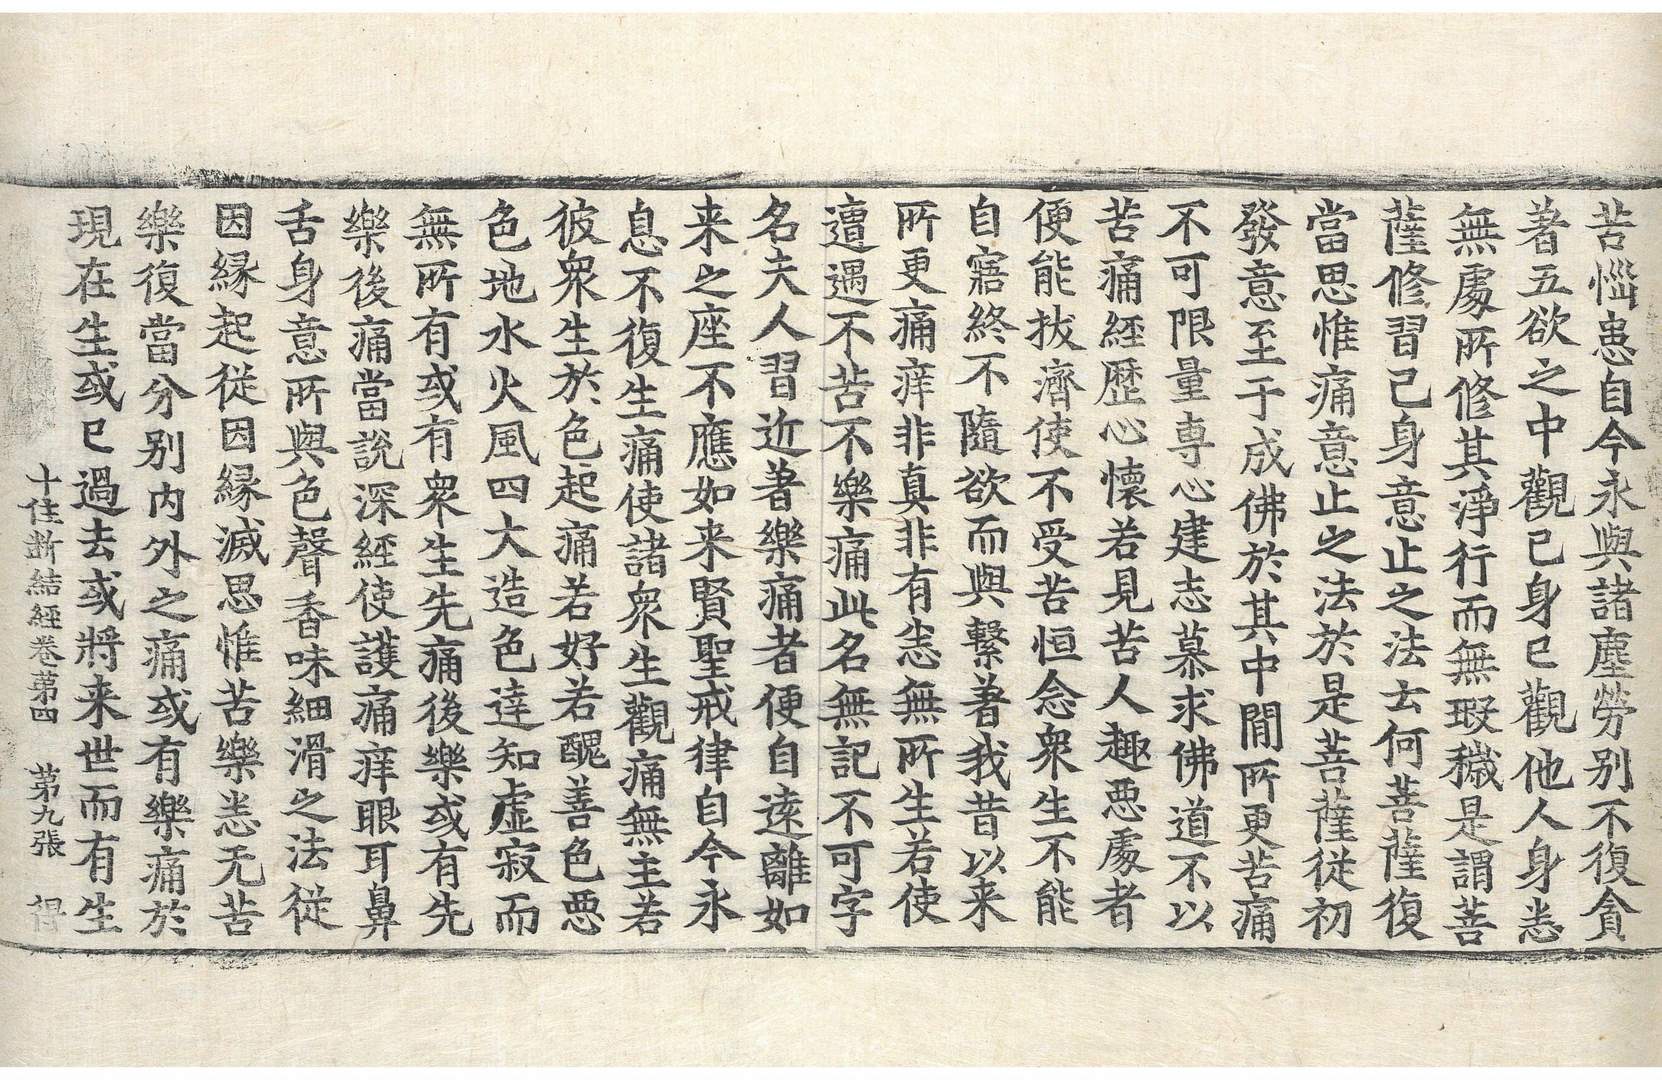 苦惱患自今永與諸塵勞別不復貪
著五欲之中觀己身已觀他人身悉
無處所修其淨行而無瑕穢是謂菩
薩修習己身意止之法云何菩薩復
當思惟痛意止之法於是菩薩從初
發意至于成佛於其中間所更苦痛
不可限量專心建志慕求佛道不以
苦痛經歷心懷若見苦人趣惡處者
便能拔濟使不受苦恒念衆生不能
自寤終不隨欲而與繫著我昔以来
所更痛痒非真非有恙無所生若使
遭遇不苦不樂痛此名無記不可字
名夫人習近著樂痛者便自遠離如
来之座不應如来賢聖戒律自今永
息不復生痛使諸衆生觀痛無主若
彼衆生於色起痛若好若醜善色惡
色地水火風四大造色達知虛寂而
無所有或有衆生先痛後樂或有先
樂後痛當說深經使護痛痒眼耳鼻
舌身意所與色聲香味細滑之法從
因緣起從因緣滅思惟苦樂悉无苦
樂復當分別内外之痛或有樂痛於
現在生或已過去或將来世而有生
十住断結經卷苐四　苐九張　得